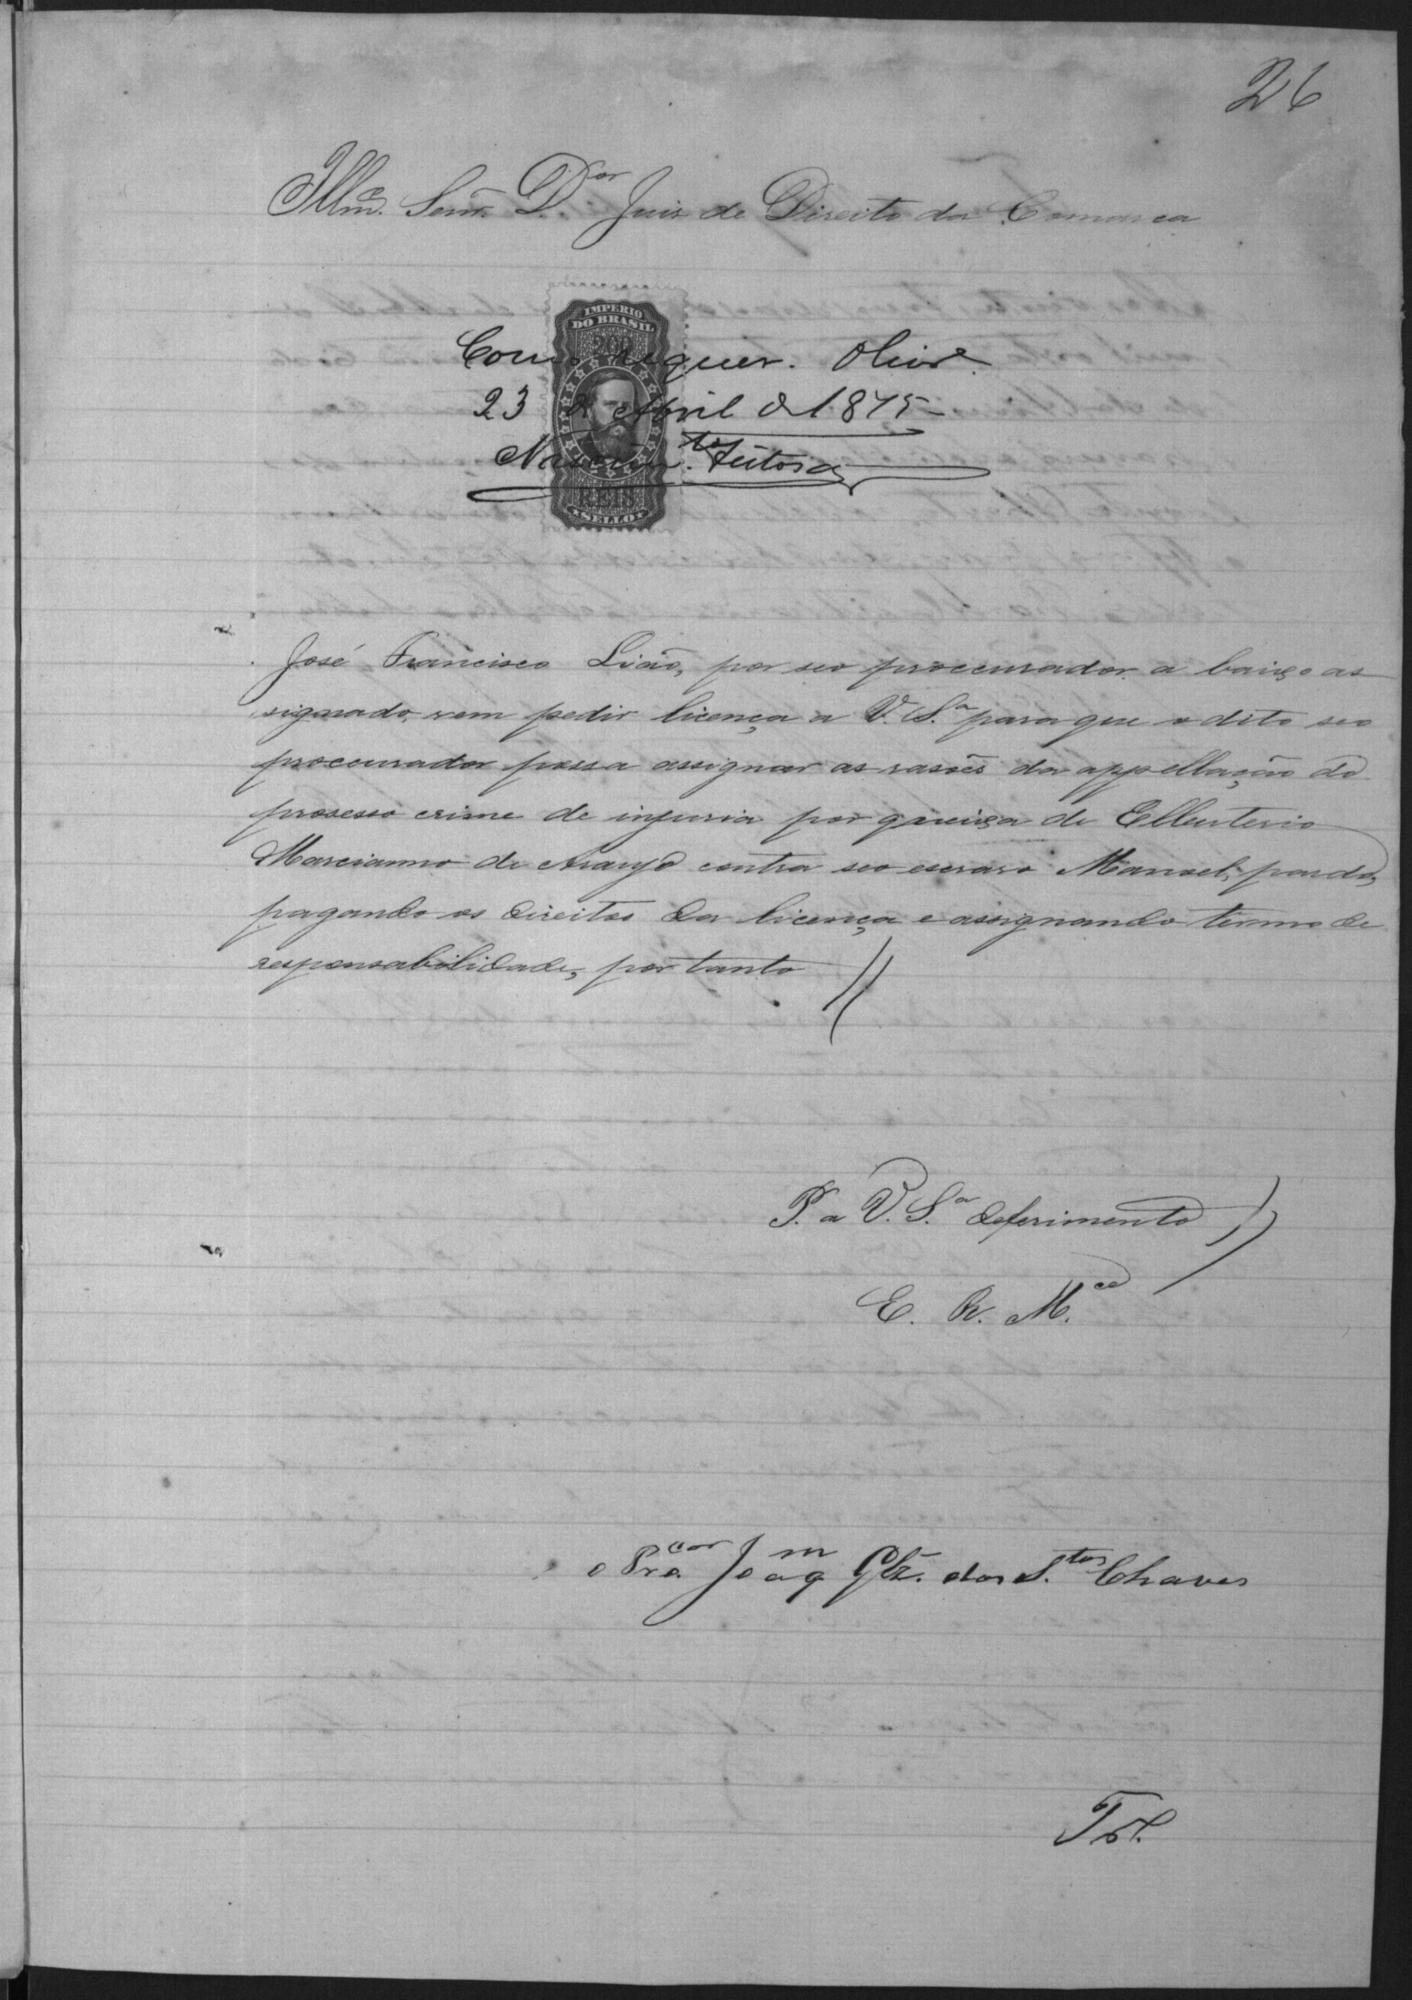 26
Illmo. Senr. Dor. Juis de Direito da Comarca
IMPERIO
DO BRASIL
200
Como requer. Olivra.
23 de Abril de 1875
Nascimto. Feitosa
REIS
SELLO
José Francisco Lião, por seo procurador a baixo as
signado, vem pedir licença a V. Sa. para que o dito seo
procurador possa assignar as rasões da appellação do
prosesso crime de injuria por queixa de Elleuterio
Marcianno de Araujo contra seo escravo Manoel, pardo,
pagando os direitos da licença e assignando termo de
responsabilidade, por tanto
P. a V. Sa. deferimento
E. R. Mce.
o Procor. Joaqm Glz. dos Stos. Chaves